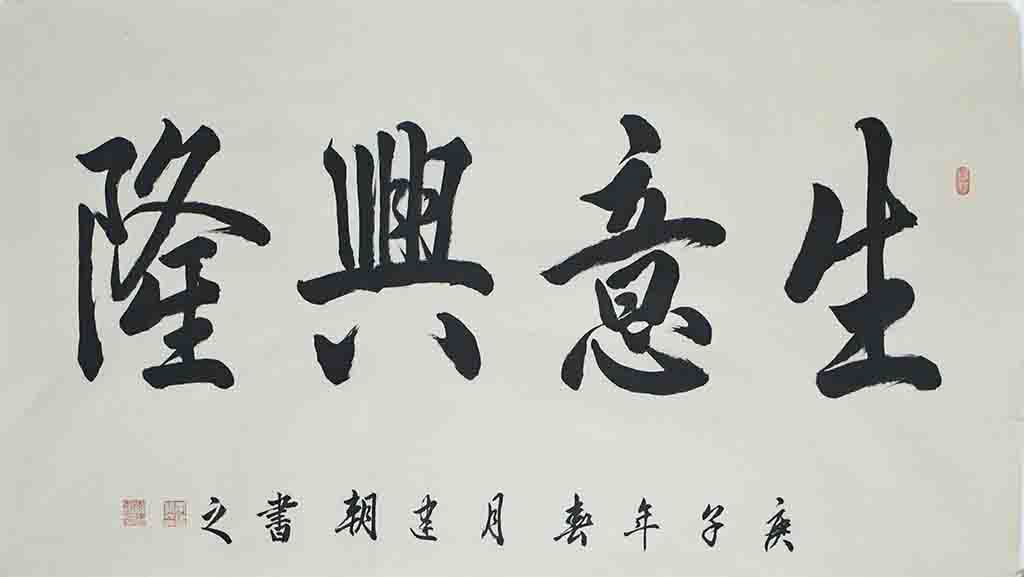 生意興隆
庚子年春月建朝書之